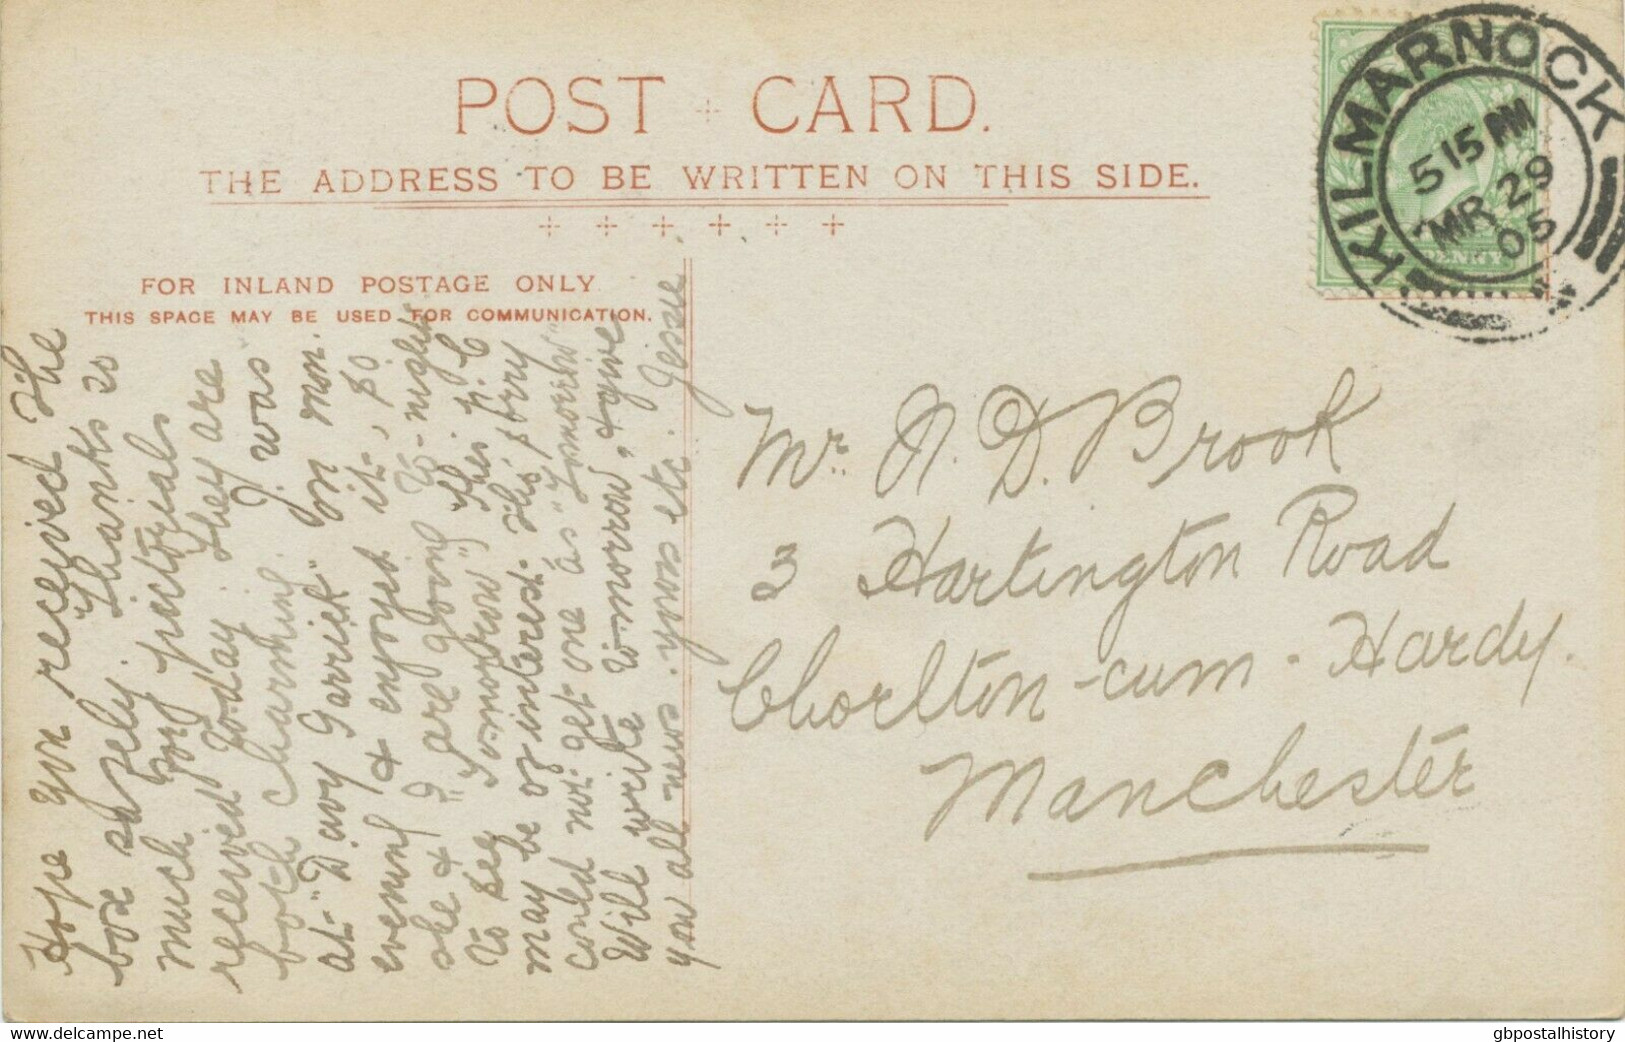 POST CARD.
THE ADDRESS TO BE WRITTEN ON THIS SIDE.
FOR INLAND POSTAGE ONLY
THIS SPACE MAY BE USED FOR COMMUNICATION.
KILMARNOCK
5 15 PM
MR 29
05
PENNY
Hope you received the
box safely. Thanks so
much for pictorials
received today. They are
both charming. J. was
at "Davy Garrick" on Mon.
evening & enjoyed it, so
she & I are going to-night
to see "Tomorrow" this P.C
may be of interest. His sorry
could not get one as "Tomorrow"
Will write tomorrow & give
you all news. yours etc. Jessie
Mr. N. D. Brook
3 Hartington Road
Chorlton-cum-Hardy.
Manchester
delcampe.net
gbpostalhistory